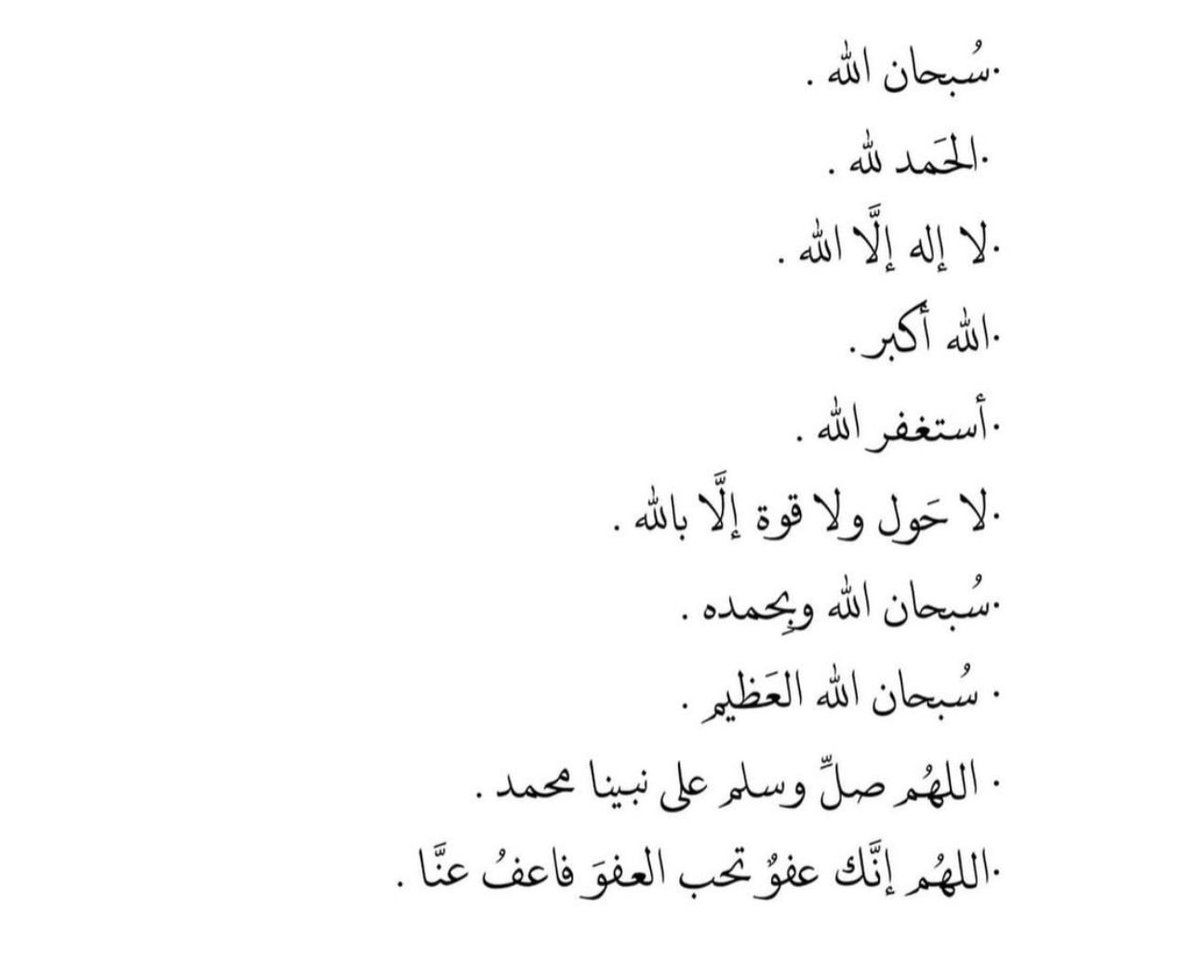 ·سُبحان الله .
·الحَمد لله .
·لا إله إلَّا الله .
·الله أكبر .
·أستغفر الله .
·لا حَول ولا قوة إلَّا بالله .
·سُبحان الله وبِحمده .
· سُبحان الله العَظيم .
· اللهُم صلِّ وسلم على نبينا محمد .
·اللهُم إنَّك عفوٌ تحب العفوَ فاعفُ عنَّا .